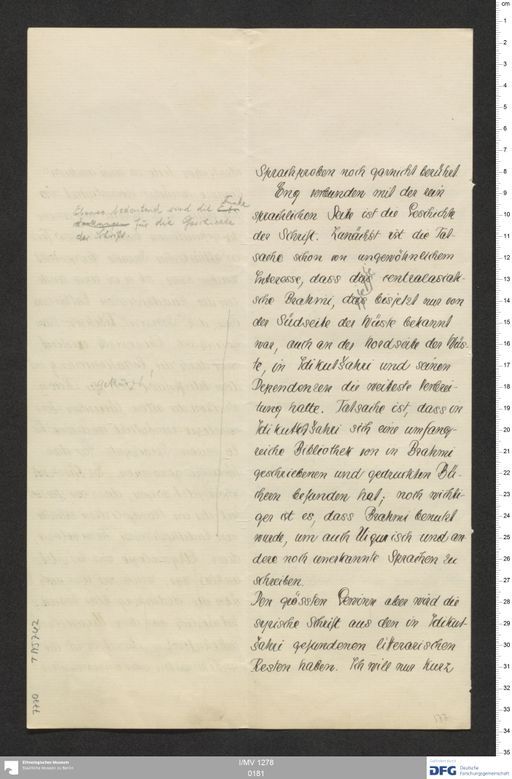 Sprachproben noch garnicht berührt.
Eng verbunden mit der rein
sprachlichen Seite ist die Geschichte
der Schrift. Zunächst ist die Tat-
sache schon von ungewöhnlichem
Interesse, dass die centralasiati-
sche Brahmi, die bisjetzt nur von
der Südseite der Wüste bekannt
war, auch an der Nordseite der Wüs-
te, in Idikutšahri und seinen
Dependencen die weiteste Verbrei-
tung hatte. Tatsache ist, dass in
Idikutšahri sich eine umfang-
reiche Bibliothek von in Brahmi
geschriebenen und gedruckten Bü-
chern befunden hat; noch wichti-
ger ist es, dass Brahmi benutzt
wurde, um auch Uigurisch und an-
dere noch unerkannte Sprachen zu
schreiben.
Den grössten Gewinn aber wird die
syrische Schrift aus den in Idikut-
šahri gefundenen literarischen
Resten haben. Ich will nur kurz
Ebenso bedeutend sind die Funde
für die Geschichte
der Schrift.
gekürzt!
7770
177
Ethnologisches Museum
Staatliche Museen zu Berlin
I/MV 1276
0181
DFG Deutsche
Forschungsgemeinschaft
cm
1
2
3
4
5
6
7
8
9
10
11
12
13
14
15
16
17
18
19
20
21
22
23
24
25
26
27
28
29
30
31
32
33
34
35